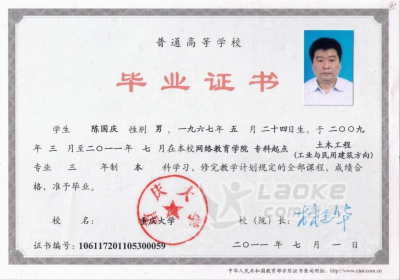 普通高等学校
毕业证书
学生 陈国庆 性别 男，一九六七年 五 月 二十四日生，于二〇〇九
年 三 月至二〇一一年 七 月在本校网络教育学院 专科起点 土木工程
（工业与民用建筑方向）
专业 三 年制 本 科学习，修完教学计划规定的全部课程，成绩合
格，准予毕业。
校 名： 重庆大学 校（院）长：
证书编号：106117201105300059 二〇一一年 七 月 一 日
中华人民共和国教育部学历证书查询网址：http://www.chsi.com.cn
重庆大学
Laoke